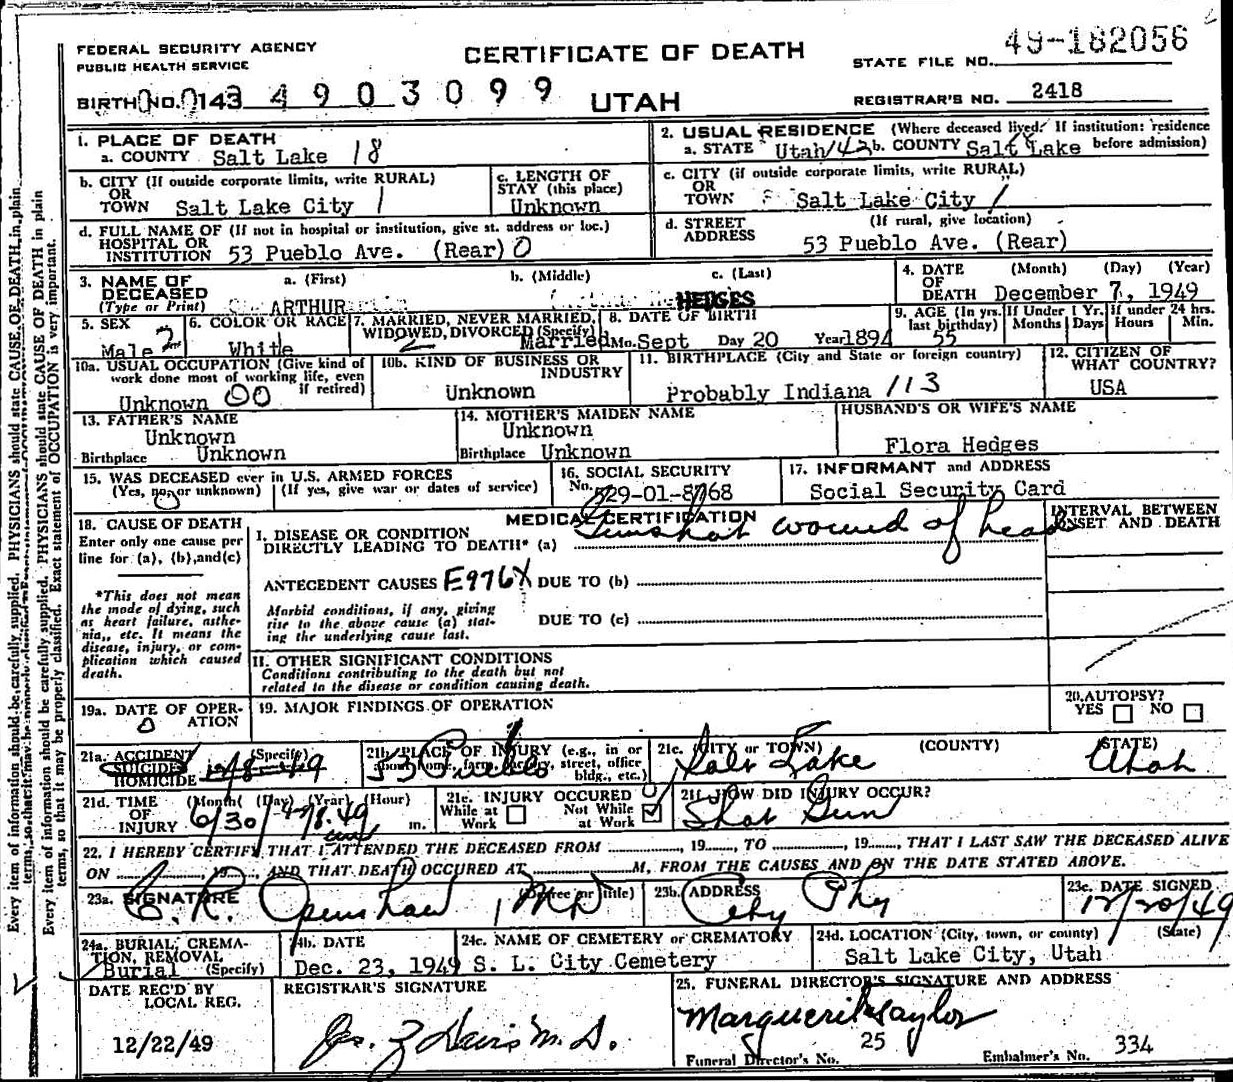 49-182056
FEDERAL SECURITY AGENCY
PUBLIC HEALTH SERVICE
CERTIFICATE OF DEATH
STATE FILE NO.
BIRTH NO. 143 4903099
UTAH
REGISTRAR'S NO. 2418
1. PLACE OF DEATH
a. COUNTY Salt Lake 18
2. USUAL RESIDENCE (Where deceased lived. If institution: residence before admission)
a. STATE Utah/43 b. COUNTY Salt Lake
b. CITY (If outside corporate limits, write RURAL)
OR
TOWN Salt Lake City 1
c. LENGTH OF
STAY (this place)
Unknown
c. CITY (if outside corporate limits, write RURAL)
OR
TOWN Salt Lake City 1
d. FULL NAME OF (If not in hospital or institution, give st. address or loc.)
HOSPITAL OR
INSTITUTION 53 Pueblo Ave. (Rear) 0
d. STREET (If rural, give location)
ADDRESS 53 Pueblo Ave. (Rear)
3. NAME OF
DECEASED
(Type or Print)
a. (First) b. (Middle) c. (Last)
ARTHUR HEDGES
4. DATE (Month) (Day) (Year)
OF
DEATH December 7, 1949
5. SEX
Male 2
6. COLOR OR RACE
White
7. MARRIED, NEVER MARRIED,
WIDOWED, DIVORCED (Specify)
Married
8. DATE OF BIRTH
Mo. Sept Day 20 Year 1894
9. AGE (In yrs. last birthday)
55
If Under 1 Yr.
Months Days
If under 24 hrs.
Hours Min.
10a. USUAL OCCUPATION (Give kind of
work done most of working life, even
if retired)
Unknown 00
10b. KIND OF BUSINESS OR
INDUSTRY
Unknown
11. BIRTHPLACE (City and State or foreign country)
Probably Indiana /113
12. CITIZEN OF
WHAT COUNTRY?
USA
13. FATHER'S NAME
Unknown
Birthplace Unknown
14. MOTHER'S MAIDEN NAME
Unknown
Birthplace Unknown
HUSBAND'S OR WIFE'S NAME
Flora Hedges
15. WAS DECEASED ever in U.S. ARMED FORCES
(Yes, no, or unknown) (If yes, give war or dates of service)
0
16. SOCIAL SECURITY
No. 529-01-8768
17. INFORMANT and ADDRESS
Social Security Card
18. CAUSE OF DEATH
Enter only one cause per
line for (a), (b), and (c)
*This does not mean
the mode of dying, such
as heart failure, asthe-
nia,, etc. It means the
disease, injury, or com-
plication which caused
death.
MEDICAL CERTIFICATION
INTERVAL BETWEEN
ONSET AND DEATH
I. DISEASE OR CONDITION
DIRECTLY LEADING TO DEATH* (a) Gunshot wound of head
ANTECEDENT CAUSES E976X DUE TO (b)
Morbid conditions, if any, giving
rise to the above cause (a) stat-
ing the underlying cause last.
DUE TO (c)
II. OTHER SIGNIFICANT CONDITIONS
Conditions contributing to the death but not
related to the disease or condition causing death.
19a. DATE OF OPER-
ATION
0
19. MAJOR FINDINGS OF OPERATION
20. AUTOPSY?
YES NO
21a. ACCIDENT (Specify)
SUICIDE
HOMICIDE 12/8-49
21b. PLACE OF INJURY (e.g., in or
about home, farm, factory, street, office
bldg., etc.)
53 Pueblo
21c. (CITY or TOWN) (COUNTY) (STATE)
Salt Lake Utah
21d. TIME (Month) (Day) (Year) (Hour)
OF
INJURY m.
21e. INJURY OCCURED
While at
Work
Not While
at Work
21f. HOW DID INJURY OCCUR?
Shot Gun
22. I HEREBY CERTIFY THAT I ATTENDED THE DECEASED FROM , 19 , TO , 19 , THAT I LAST SAW THE DECEASED ALIVE
ON , 19 , AND THAT DEATH OCCURED AT M, FROM THE CAUSES AND ON THE DATE STATED ABOVE.
23a. SIGNATURE (Degree or title)
C. R. Openshaw, MD
23b. ADDRESS
City Phy
23c. DATE SIGNED
12/20/49
24a. BURIAL, CREMA-
TION, REMOVAL
Burial (Specify)
24b. DATE
Dec. 23, 1949
24c. NAME OF CEMETERY or CREMATORY
S. L. City Cemetery
24d. LOCATION (City, town, or county) (State)
Salt Lake City, Utah
DATE REC'D BY
LOCAL REG.
12/22/49
REGISTRAR'S SIGNATURE
Jas. Z Davis M.D.
25. FUNERAL DIRECTOR'S SIGNATURE AND ADDRESS
Marguerite Taylor
Funeral Director's No. 25 Embalmer's No. 334
Every item of information should be carefully supplied. PHYSICIANS should state CAUSE OF DEATH in plain
terms, so that it may be properly classified. Exact statement of OCCUPATION is very important.